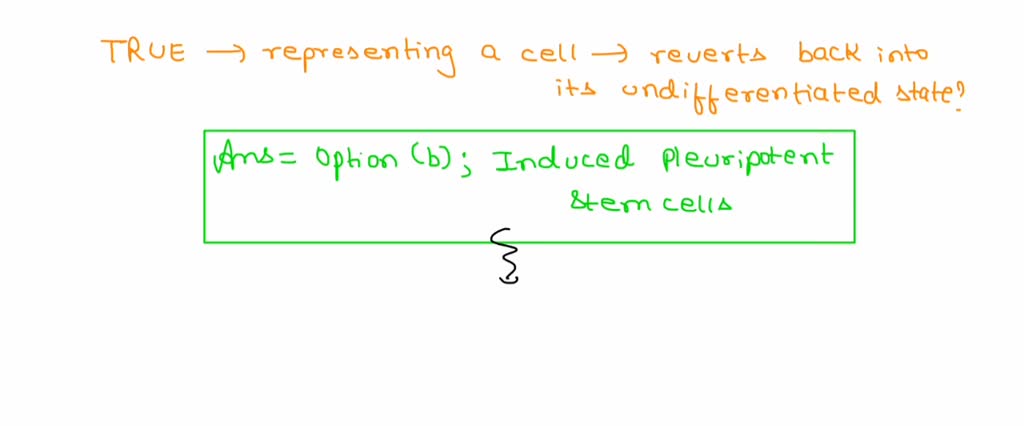 TRUE → representing a cell → reverts back into
its undifferentiated state?
Ans = Option (b); Induced Pleuripotent
Stem cells